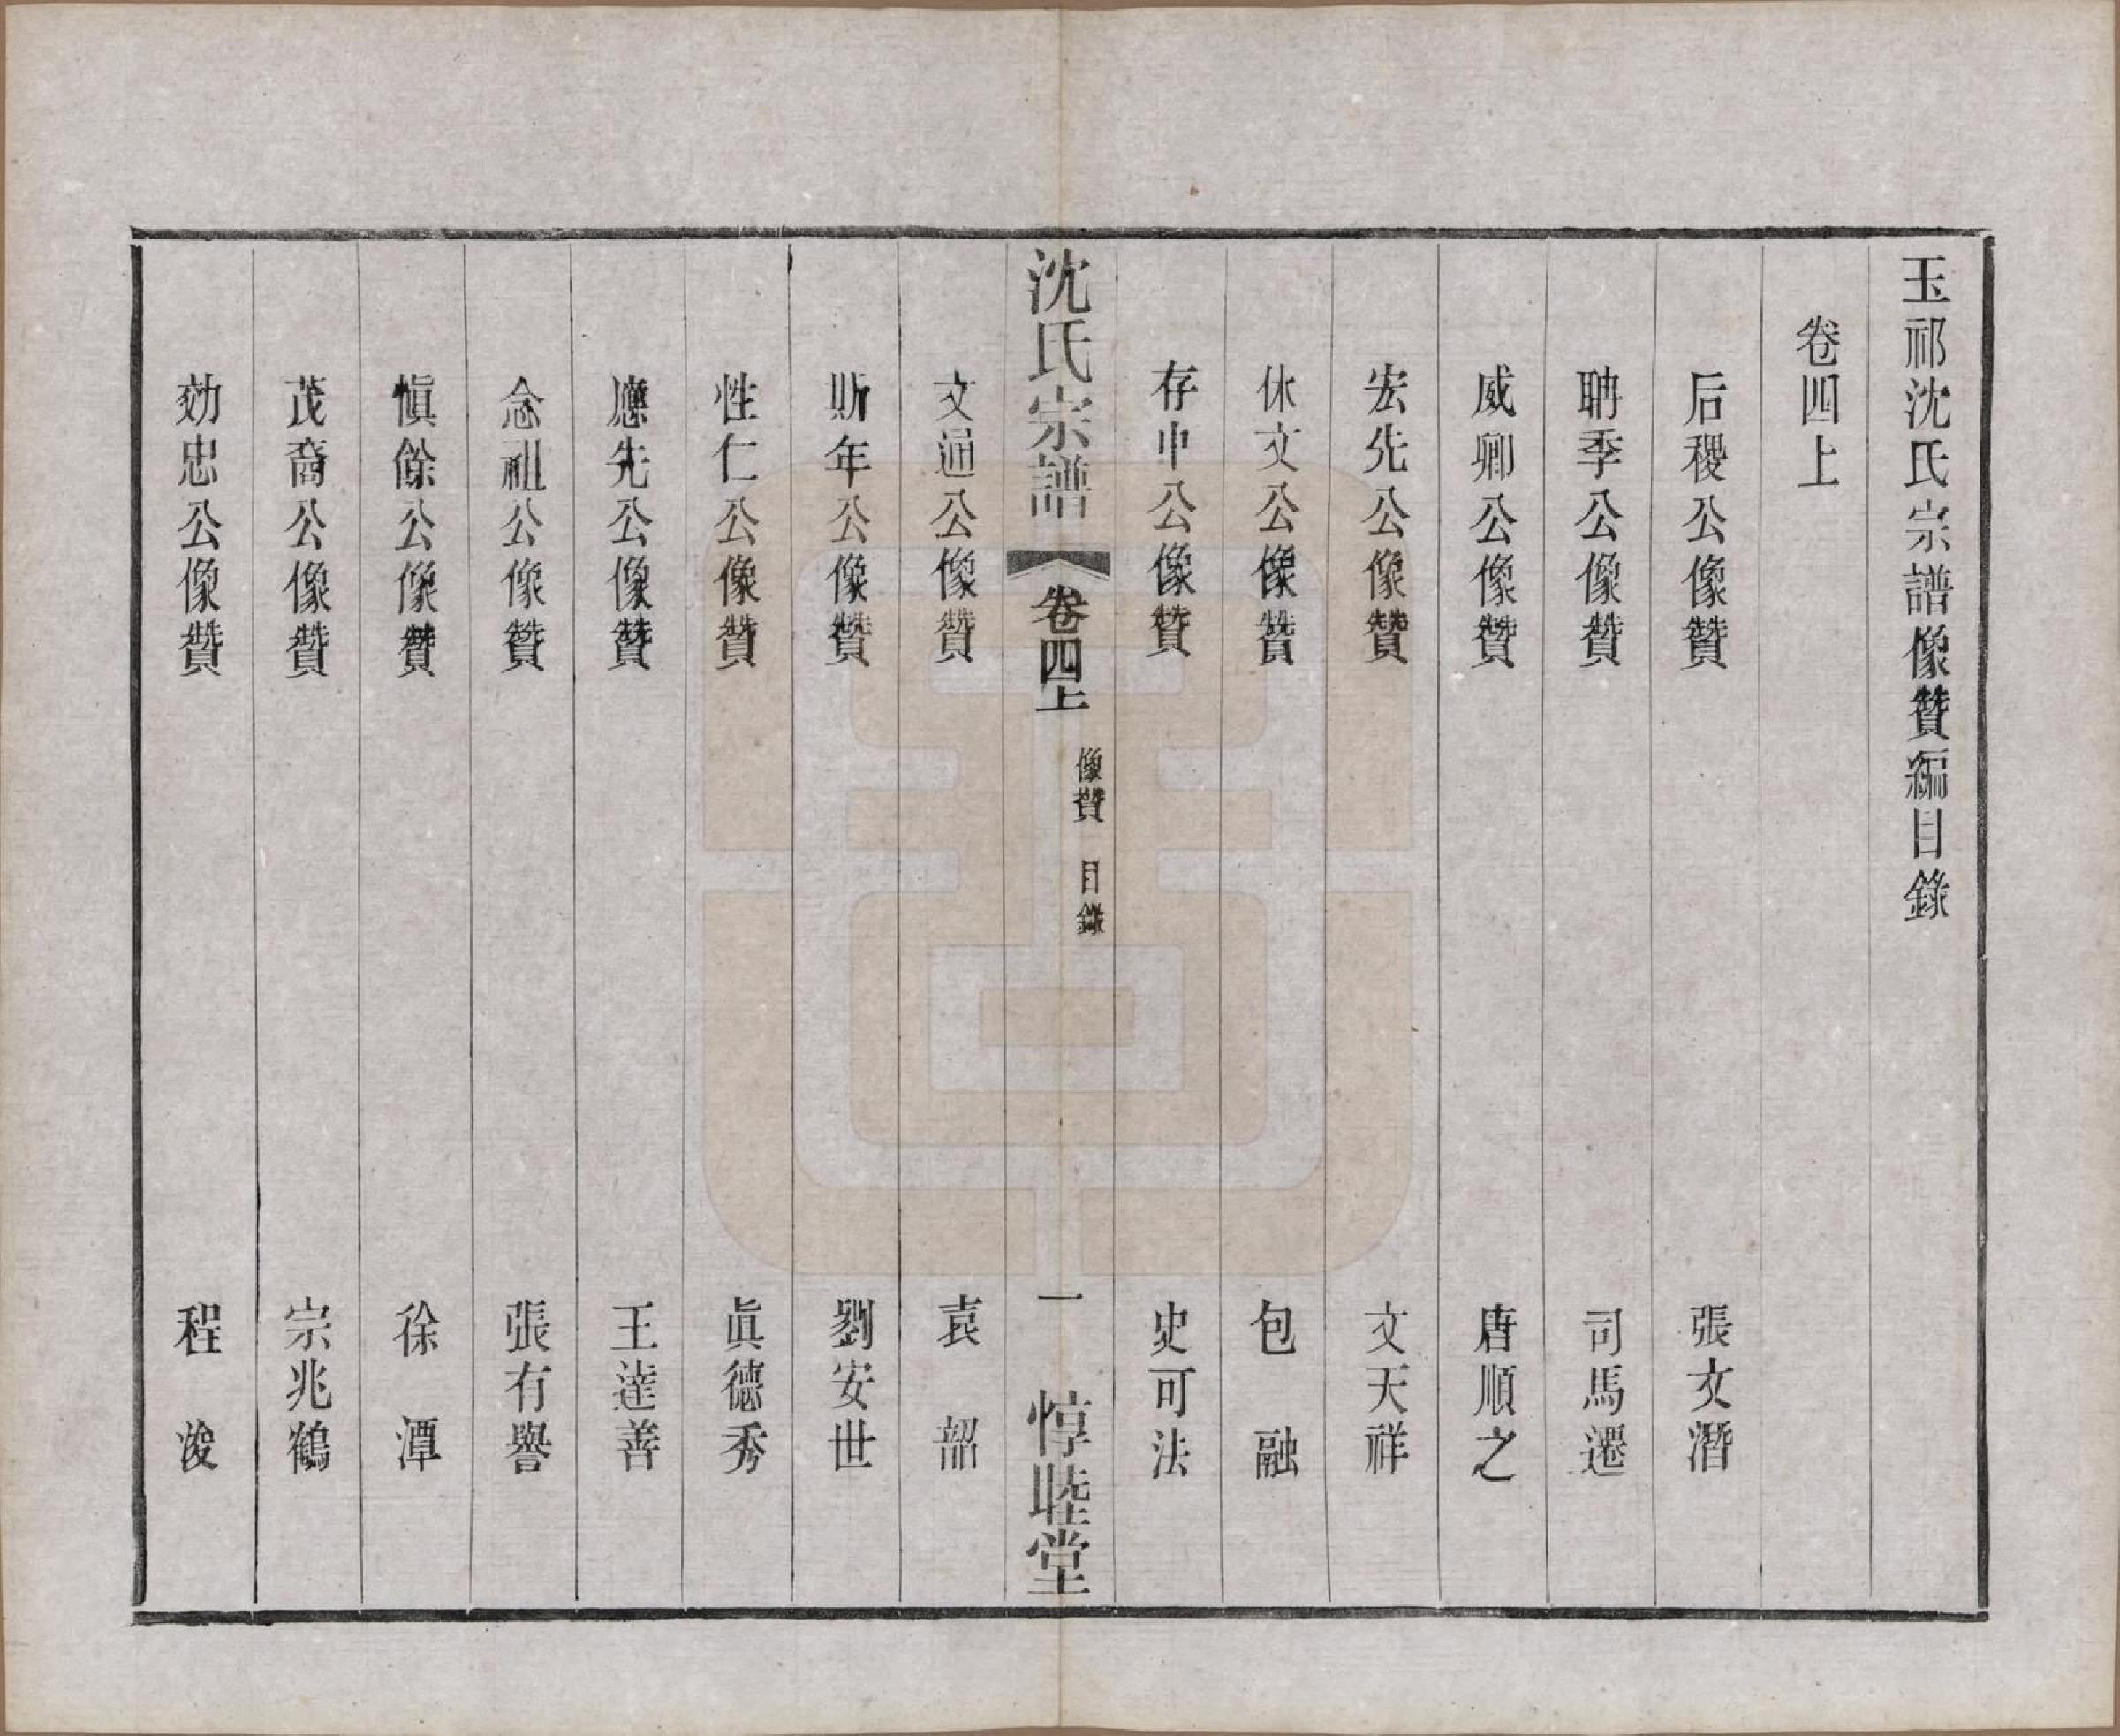 玉祁沈氏宗譜像贊編目錄
卷四上
后稷公像贊 張文潛
聃季公像贊 司馬遷
威卿公像贊 唐順之
宏先公像贊 文天祥
休文公像贊 包融
存中公像贊 史可法
沈氏宗譜 卷四上 像贊 目錄 一 惇睦堂
文通公像贊 袁韶
斯年公像贊 劉安世
性仁公像贊 眞德秀
應先公像贊 王達善
念祖公像贊 張有譽
愼餘公像贊 徐潭
茂裔公像贊 宗兆鶴
効忠公像贊 程浚